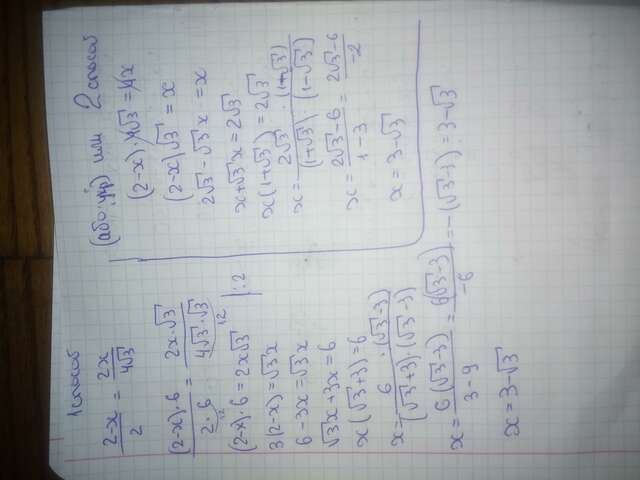 1 способ
(2-x)/2 = 2x/(4√3)
((2-x)·6)/(2·6) = (2x·√3)/(4√3·√3)
12 12
(2-x)·6 = 2x√3 |:2
3(2-x) = √3x
6-3x = √3x
√3x+3x = 6
x(√3+3) = 6
x = (6·(√3-3))/((√3+3)·(√3-3))
x = (6(√3-3))/(3-9) = (6(√3-3))/(-6) = -(√3-3) = 3-√3
x = 3-√3
или 2 способ
(2-x)·4√3 = 4x
(2-x)√3 = x
2√3-√3x = x
x+√3x = 2√3
x(1+√3) = 2√3
x = (2√3·(1+√3))/((1+√3)(1-√3))
x = (2√3-6)/(1-3) = (2√3-6)/(-2)
x = 3-√3